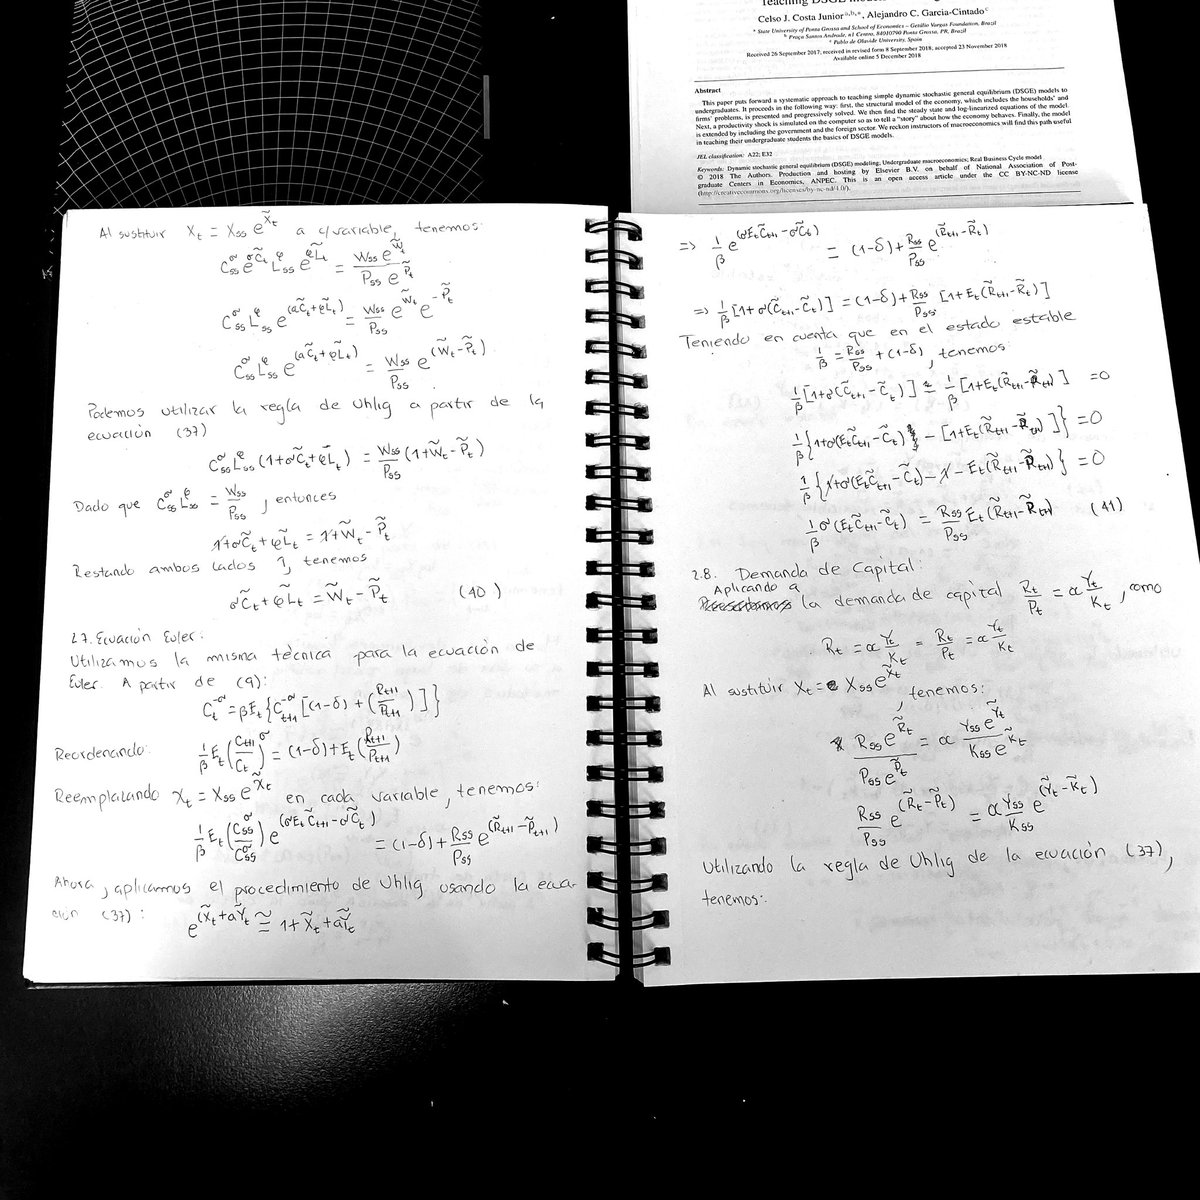 Teaching DSGE models
Celso J. Costa Junior a,b,*, Alejandro C. Garcia-Cintado c
a State University of Ponta Grossa and School of Economics – Getúlio Vargas Foundation, Brazil
b Praça Santos Andrade, n1 Centro, 84010790 Ponta Grossa, PR, Brazil
c Pablo de Olavide University, Spain
Received 26 September 2017; received in revised form 8 September 2018; accepted 23 November 2018
Available online 5 December 2018
Abstract
This paper puts forward a systematic approach to teaching simple dynamic stochastic general equilibrium (DSGE) models to
undergraduates. It proceeds in the following way: first, the structural model of the economy, which includes the households' and
firms' problems, is presented and progressively solved. We then find the steady state and log-linearized equations of the model.
Next, a productivity shock is simulated on the computer so as to tell a "story" about how the economy behaves. Finally, the model
is extended by including the government and the foreign sector. We reckon instructors of macroeconomics will find this path useful
in teaching their undergraduate students the basics of DSGE models.
JEL classification: A22; E32
Keywords: Dynamic stochastic general equilibrium (DSGE) modeling; Undergraduate macroeconomics; Real Business Cycle model
© 2018 The Authors. Production and hosting by Elsevier B.V. on behalf of National Association of Post-
graduate Centers in Economics, ANPEC. This is an open access article under the CC BY-NC-ND license
(http://creativecommons.org/licenses/by-nc-nd/4.0/).
Al sustituir X_t = X_ss e^{X̃_t} a c/variable, tenemos:
C_ss^σ e^{σC̃_t} L_ss^φ e^{φL̃_t} = W_ss e^{W̃_t} / P_ss e^{P̃_t}
C_ss^σ L_ss^φ e^{(σC̃_t+φL̃_t)} = W_ss/P_ss e^{W̃_t} e^{-P̃_t}
C_ss^σ L_ss^φ e^{(σC̃_t+φL̃_t)} = W_ss/P_ss e^{(W̃_t-P̃_t)}
Podemos utilizar la regla de Uhlig a partir de la
ecuación (37)
C_ss^σ L_ss^φ (1+σC̃_t+φL̃_t) = W_ss/P_ss (1+W̃_t-P̃_t)
Dado que C_ss^σ L_ss^φ = W_ss/P_ss, entonces
1+σC̃_t+φL̃_t = 1+W̃_t-P̃_t
Restando ambos lados 1, tenemos
σC̃_t+φL̃_t = W̃_t-P̃_t (40)
2.7. Ecuación Euler:
Utilizamos la misma técnica para la ecuación de
Euler. A partir de (9):
C_t^{-σ} = βE_t{C_{t+1}^{-σ}[(1-δ)+(R_{t+1}/P_{t+1})]}
Reordenando: 1/β E_t(C_{t+1}/C_t)^σ = (1-δ)+E_t(R_{t+1}/P_{t+1})
Reemplazando X_t = X_ss e^{X̃_t} en cada variable, tenemos:
1/β E_t(C_ss^σ/C_ss^σ) e^{(σE_tC̃_{t+1}-σC̃_t)} = (1-δ)+R_ss/P_ss e^{(R̃_{t+1}-P̃_{t+1})}
Ahora, aplicamos el procedimiento de Uhlig usando la ecua-
ción (37): e^{(X̃_t+aỸ_t} ≅ 1+X̃_t+aỸ_t
=> 1/β e^{(σE_tC̃_{t+1}-σC̃_t)} = (1-δ)+R_ss/P_ss e^{(R̃_{t+1}-R̃_t)}
=> 1/β[1+σ(C̃_{t+1}-C̃_t)] = (1-δ)+R_ss/P_ss [1+E_t(R̃_{t+1}-R̃_t)]
Teniendo en cuenta que en el estado estable
1/β = R_ss/P_ss+(1-δ), tenemos:
1/β[1+σ(C̃_{t+1}-C̃_t)] = 1/β[1+E_t(R̃_{t+1}-P̃_{t+1})] =0
1/β{1+σ(E_tC̃_{t+1}-C̃_t) - [1+E_t(R̃_{t+1}-P̃_{t+1})]}=0
1/β{1+σ(E_tC̃_{t+1}-C̃_t)-1-E_t(R̃_{t+1}-P̃_{t+1})}=0
1/β σ(E_tC̃_{t+1}-C̃_t) = R_ss/P_ss E_t(R̃_{t+1}-P̃_{t+1}) (41)
2.8. Demanda de capital:
Aplicando a
la demanda de capital R_t/P_t = α Y_t/K_t, como
R_t = α Y_t/K_t = R_t/P_t = α Y_t/K_t
Al sustituir X_t = X_ss e^{X̃_t}, tenemos:
R_ss e^{R̃_t} / P_ss e^{P̃_t} = α Y_ss e^{Ỹ_t} / K_ss e^{K̃_t}
R_ss/P_ss e^{(R̃_t-P̃_t)} = α Y_ss/K_ss e^{(Ỹ_t-K̃_t)}
Utilizando la regla de Uhlig de la ecuación (37),
tenemos: